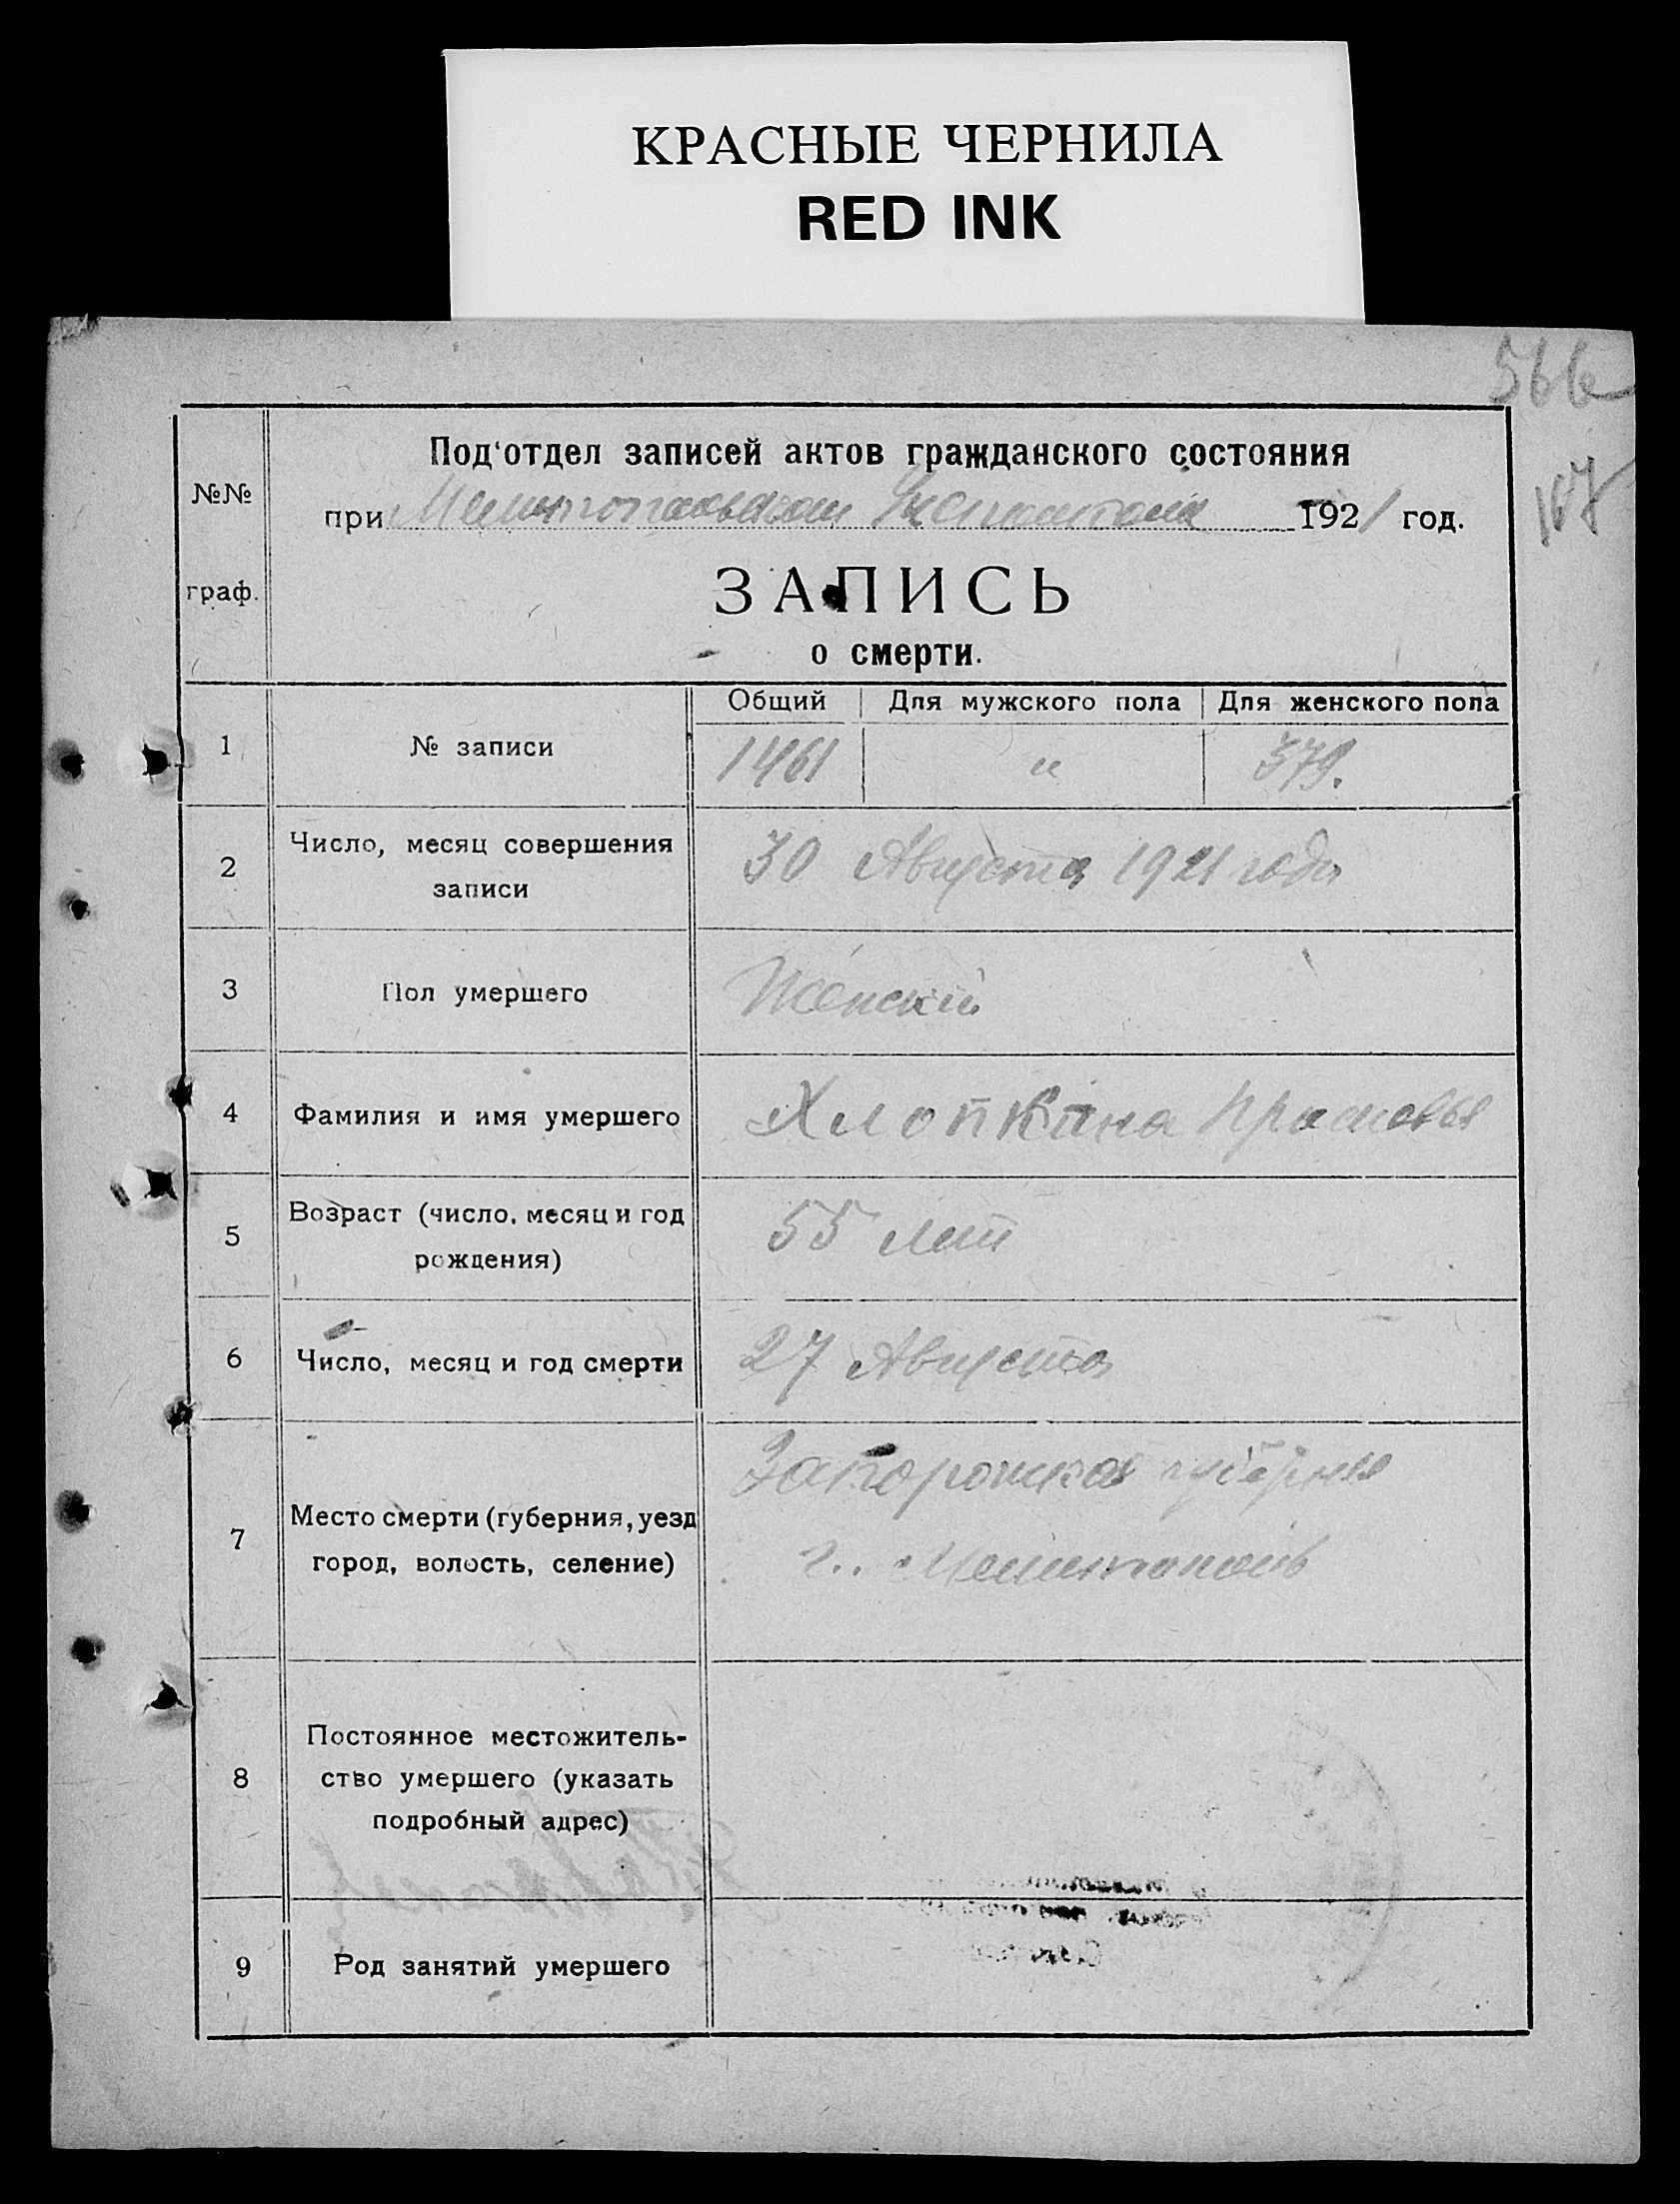 КРАСНЫЕ ЧЕРНИЛА
RED INK
566
107
Под‘отдел записей актов гражданского состояния
№№ граф.
при Мелитопольском 1921 год.
ЗАПИСЬ
о смерти.
Общий Для мужского пола Для женского пола
1 № записи 1461 " 379.
2 Число, месяц совершения
записи
30 Августа 1921 года
3 Пол умершего Женский
4 Фамилия и имя умершего Хлопкина Прасковья
5 Возраст (число, месяц и год
рождения)
55 лет
6 Число, месяц и год смерти 27 Августа
Запорожская губерния
7 Место смерти (губерния, уезд
город, волость, селение)
г. Мелитополь
Постоянное местожитель-
8 ство умершего (указать
подробный адрес)
9 Род занятий умершего